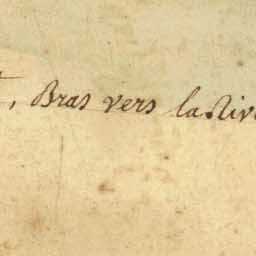 t, Bras vers la Riv